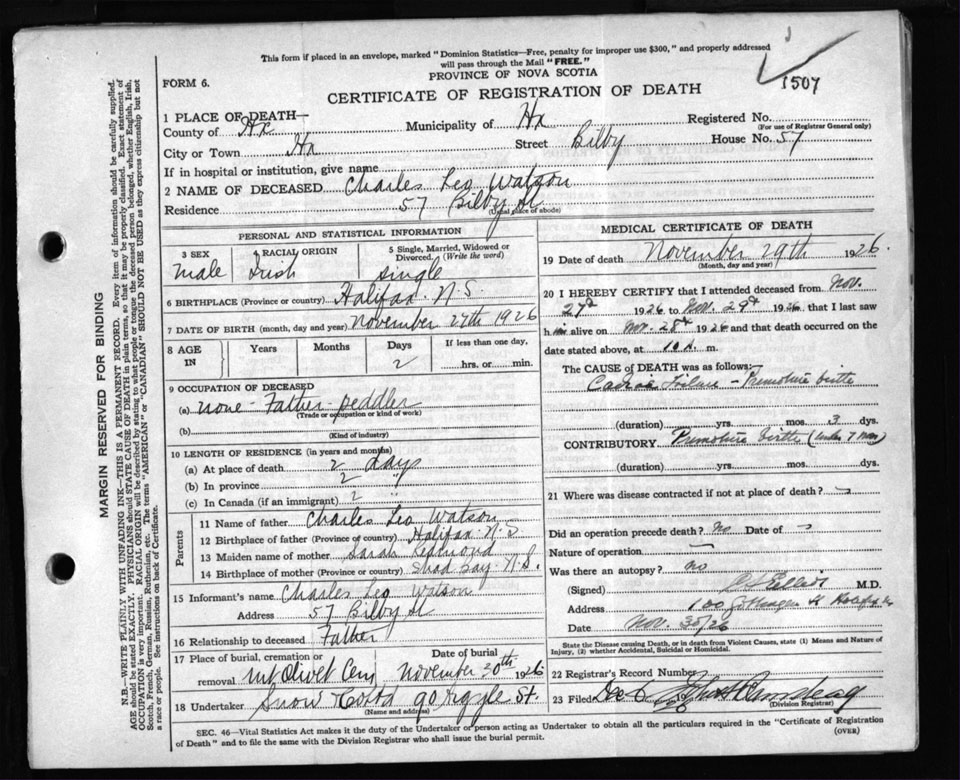 This form if placed in an envelope, marked "Dominion Statistics—Free, penalty for improper use $300," and properly addressed
will pass through the Mail "FREE."
PROVINCE OF NOVA SCOTIA
1507
FORM 6.
CERTIFICATE OF REGISTRATION OF DEATH
1 PLACE OF DEATH—
County of Hx Municipality of Hx Registered No.
(For use of Registrar General only)
City or Town Hx Street Bilby House No. 57
If in hospital or institution, give name
2 NAME OF DECEASED Charles Leo Watson
Residence 57 Bilby St
(Usual place of abode)
PERSONAL AND STATISTICAL INFORMATION
3 SEX 4 RACIAL ORIGIN 5 Single, Married, Widowed or Divorced. (Write the word)
Male Irish Single
6 BIRTHPLACE (Province or country) Halifax N.S.
7 DATE OF BIRTH (month, day and year) November 27th 1926
8 AGE IN Years Months Days If less than one day,
2 hrs. or min.
9 OCCUPATION OF DECEASED
(a) None - Father - peddler
(Trade or occupation or kind of work)
(b)
(Kind of industry)
10 LENGTH OF RESIDENCE (in years and months)
(a) At place of death 2 days
(b) In province 2 "
(c) In Canada (if an immigrant) 2 "
Parents
11 Name of father Charles Leo Watson
12 Birthplace of father (Province or country) Halifax N.S
13 Maiden name of mother Sarah Redmond
14 Birthplace of mother (Province or country) Shad Bay N.S.
15 Informant's name Charles Leo Watson
Address 57 Bilby St
16 Relationship to deceased Father
17 Place of burial, cremation or removal Mt Olivet Cem Date of burial November 30th 1926
18 Undertaker Snow & Co Ltd 90 Argyle St.
(Name and address)
MEDICAL CERTIFICATE OF DEATH
19 Date of death November 29th 1926.
(Month, day and year)
20 I HEREBY CERTIFY that I attended deceased from Nov.
27th 1926 to Nov. 29th 1926, that I last saw
him alive on Nov. 28th 1926 and that death occurred on the
date stated above, at 10 A. m.
The CAUSE OF DEATH was as follows:
Failure - Premature birth
(duration) yrs. mos. 3 dys.
CONTRIBUTORY Premature birth (under 7 mos)
(duration) yrs. mos. dys.
21 Where was disease contracted if not at place of death?
Did an operation precede death? No Date of
Nature of operation
Was there an autopsy? No
(Signed) M.D.
Address 100 Gottingen St Halifax
Date Nov. 30/26
State the disease causing Death, or in death from Violent Causes, state (1) Means and Nature of
Injury, (2) whether Accidental, Suicidal or Homicidal.
22 Registrar's Record Number
23 Filed Dec
(Division Registrar)
SEC. 46—Vital Statistics Act makes it the duty of the Undertaker or person acting as Undertaker to obtain all the particulars required in the "Certificate of Registration
of Death" and to file the same with the Division Registrar who shall issue the burial permit.
(OVER)
MARGIN RESERVED FOR BINDING
N.B.—WRITE PLAINLY WITH UNFADING INK—THIS IS A PERMANENT RECORD. Every item of information should be carefully supplied.
AGE should be stated EXACTLY. PHYSICIANS should STATE CAUSE OF DEATH in plain terms, so that it may be properly classified. Exact statement of
OCCUPATION is very important. RACIAL ORIGIN will be described by stating to what people or tongue the deceased person belonged, whether English, Irish,
Scotch, French, German, Russian, Ruthenian, etc. The terms "AMERICAN" or "CANADIAN" SHOULD NOT BE USED as they express citizenship but not
a race or people. See instructions on back of Certificate.